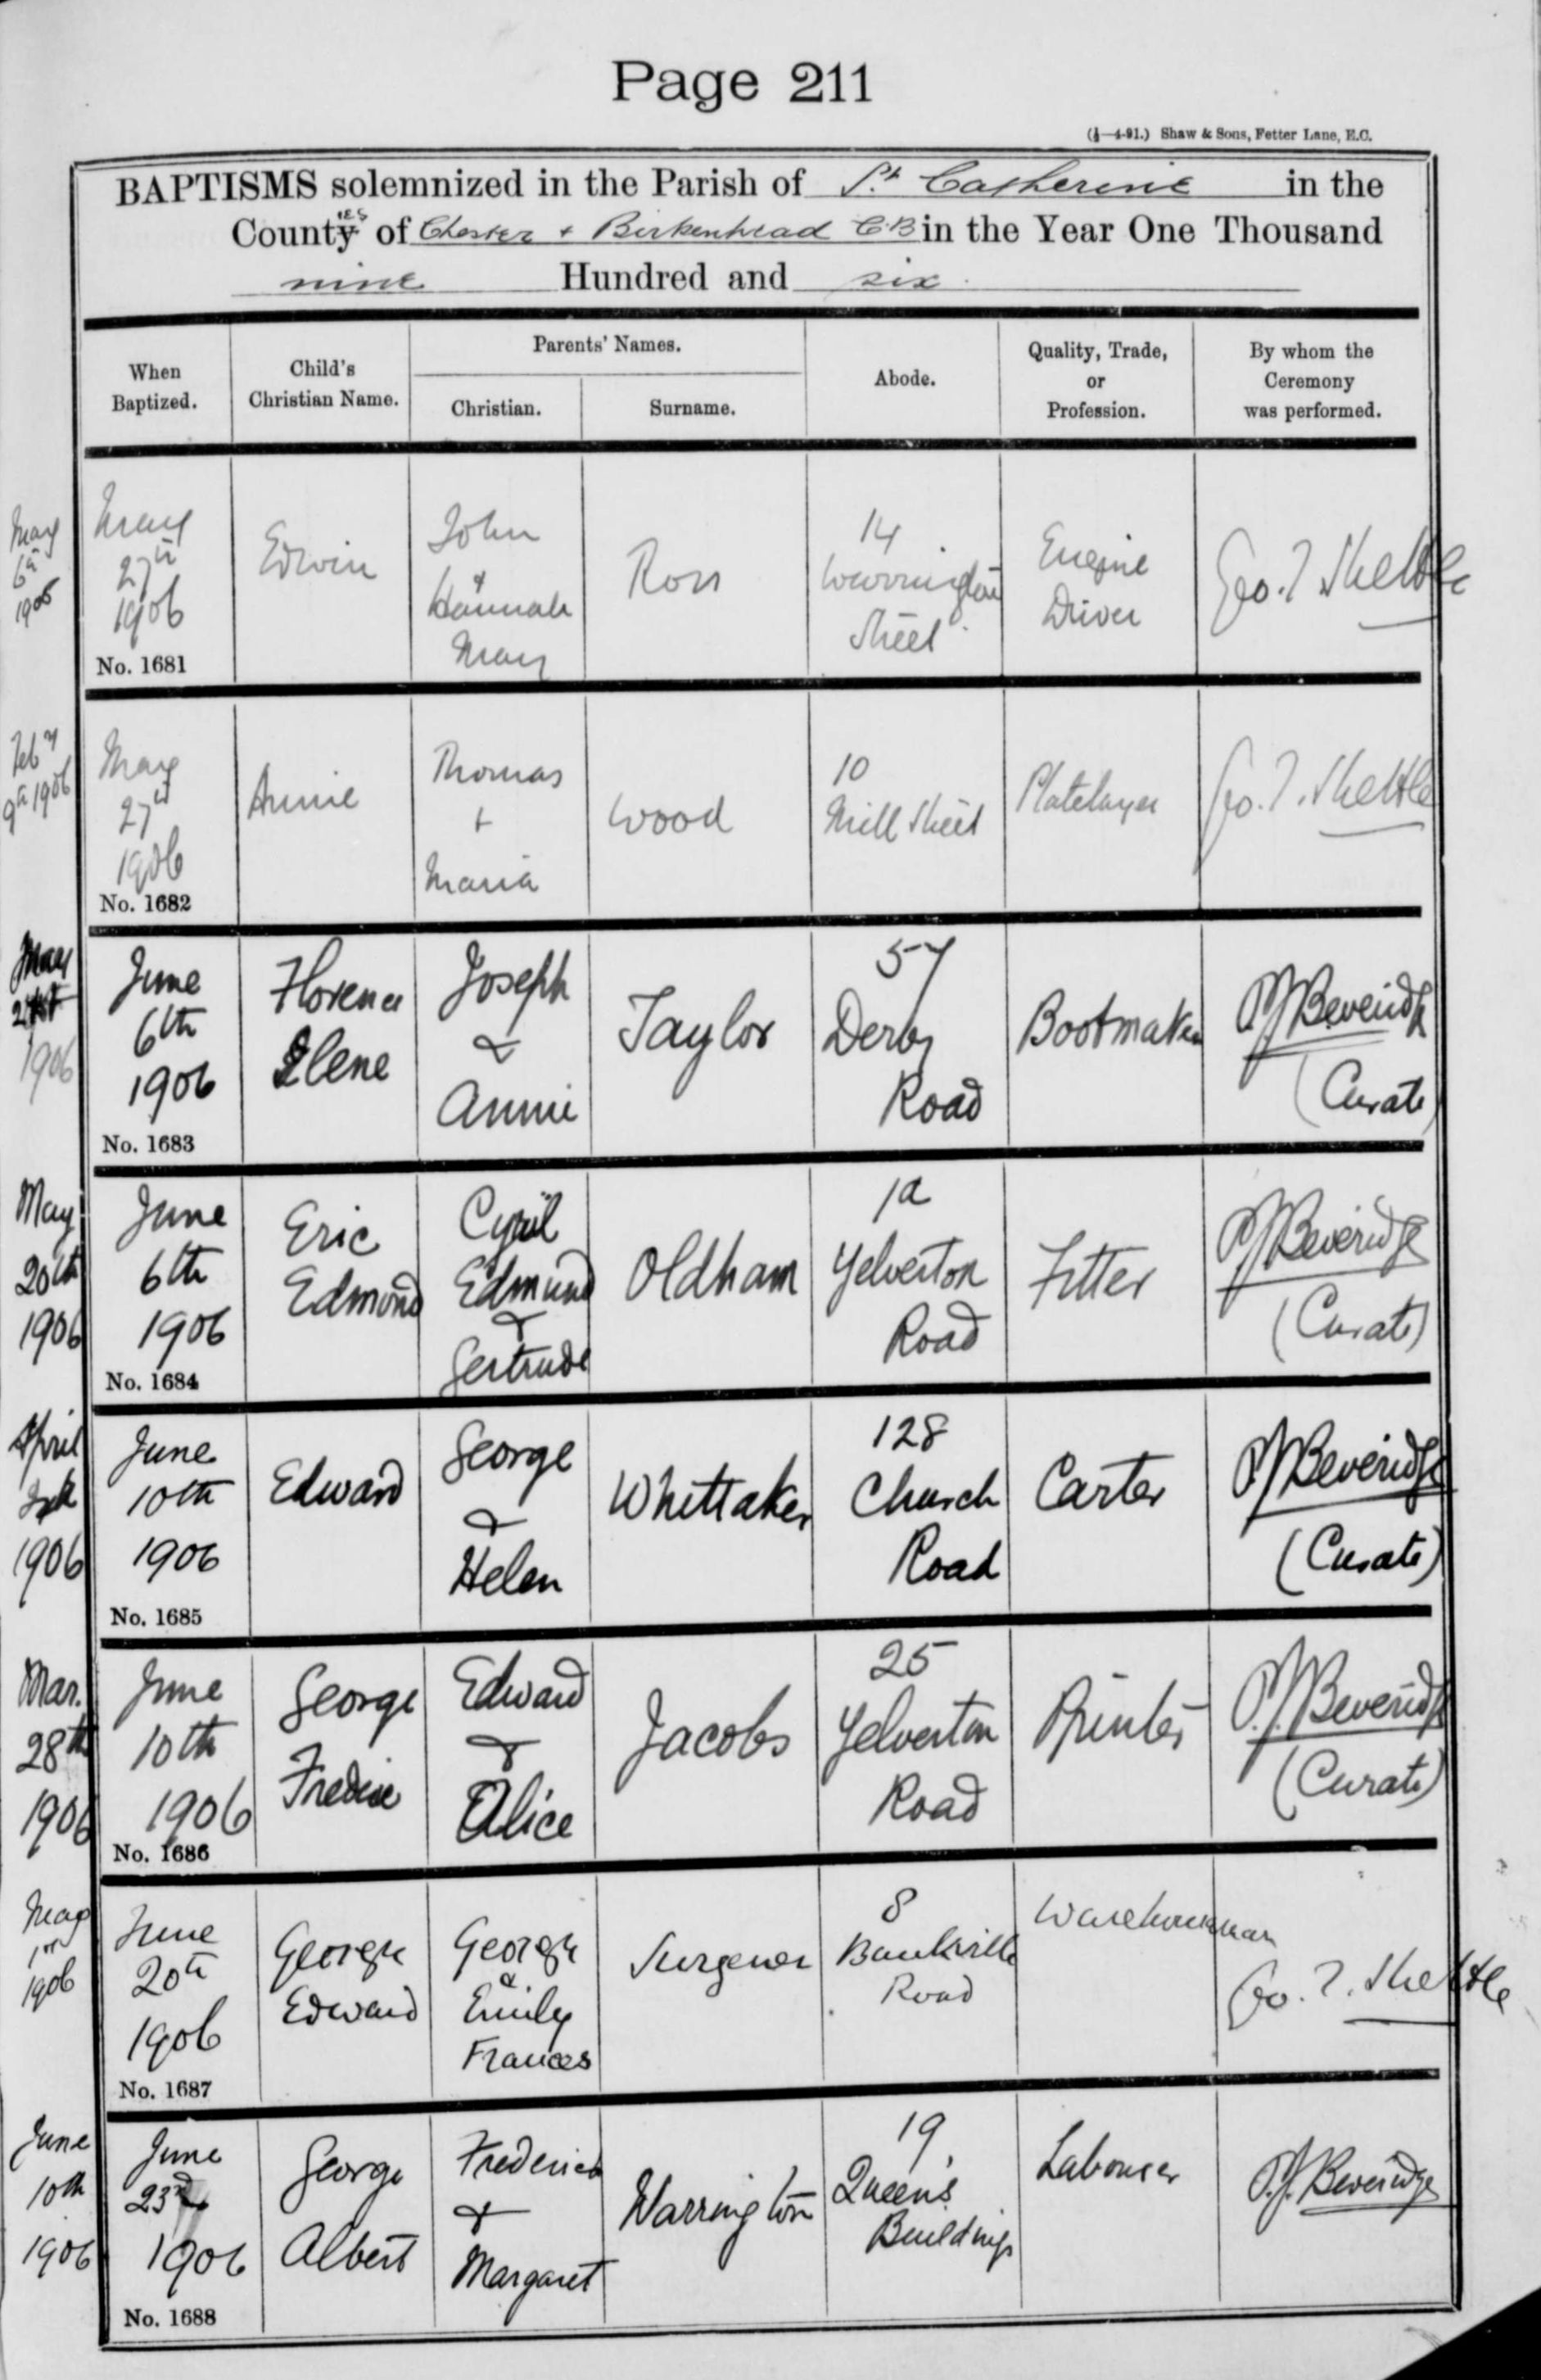 Page 211
(½—4-91.) Shaw & Sons, Fetter Lane, E.C.
BAPTISMS solemnized in the Parish of St Catherine in the
County ies of Chester + Birkenhead C.B in the Year One Thousand
nine Hundred and six.
When Baptized.
Child's Christian Name.
Parents' Names.
Christian.
Surname.
Abode.
Quality, Trade, or Profession.
By whom the Ceremony was performed.
May
6th
1906
May
27th
1906
No. 1681
Edwin
John
&
Hannah
May
Ross
14
Warrington
Street
Engine
Driver
Geo. T. Shettle
Feby
9th 1906
May
27th
1906
No. 1682
Annie
Thomas
+
Maria
Wood
10
Mill Street
Platelayer
Geo. T. Shettle
May
21st
1906
June
6th
1906
No. 1683
Florence
Elene
Joseph
&
Annie
Taylor
57
Derby
Road
Bootmaker
Beveridge
(Curate
May
20th
1906
June
6th
1906
No. 1684
Eric
Edmond
Cyril
Edmund
&
Gertrude
Oldham
1a
Yelverton
Road
Fitter
Beveridge
(Curate)
April
1906
June
10th
1906
No. 1685
Edward
George
&
Helen
Whittaker
128
Church
Road
Carter
Beveridge
(Curate)
Mar.
28th
1906
June
10th
1906
No. 1686
George
Edward
&
Alice
Jacobs
25
Yelverton
Road
Printer
Beveridge
(Curate)
May
1st
1906
June
20th
1906
No. 1687
George
Edward
George
&
Emily
Frances
Surgenor
8
Bankville
Road
Warehouseman
Geo. T. Shettle
June
10th
1906
June
23rd
1906
No. 1688
George
Albert
Frederick
&
Margaret
Warrington
19
Queen's
Buildings
Labourer
Beveridge